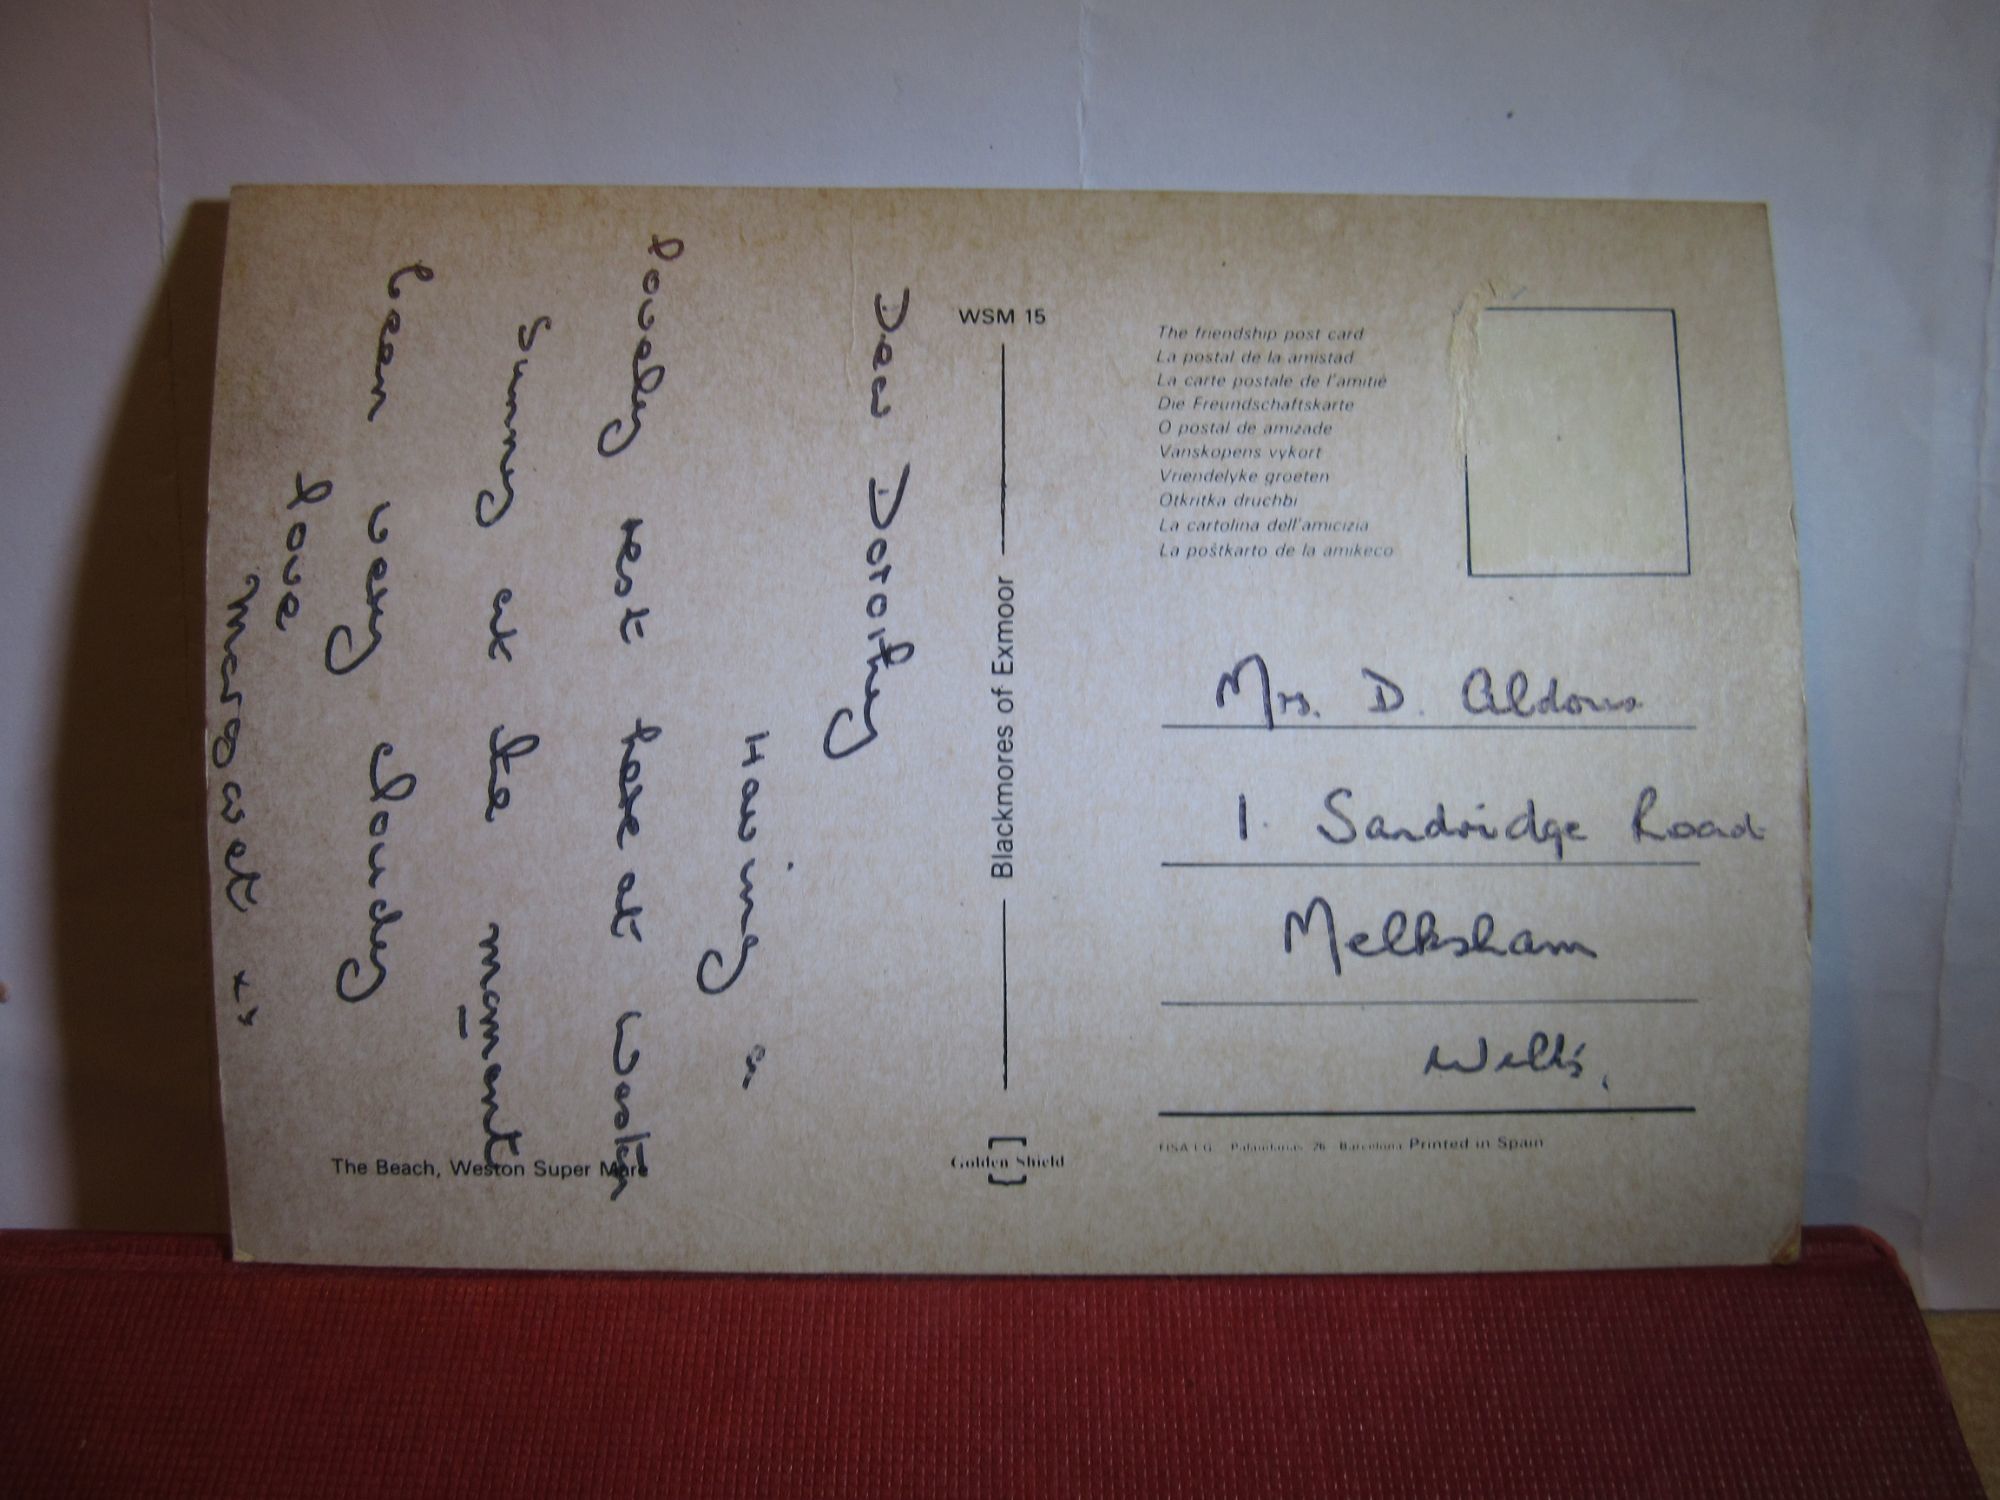 Dear Dorothy
Having a
lovely rest here at Weston
Sunny at the moment
been very cloudy
love
Margaret x
WSM 15
Blackmores of Exmoor
Golden Shield
The Beach, Weston Super Mare
The friendship post card
La postal de la amistad
La carte postale de l'amitié
Die Freundschaftskarte
O postal de amizade
Vanskopens vykort
Vriendelyke groeten
Otkritka druchbi
La cartolina dell'amicizia
La poŝtkarto de la amikeco
Mrs. D. Aldous
1. Sandridge Road
Melksham
Wilts.
FISA I.G. Palaudarias, 26 Barcelona Printed in Spain